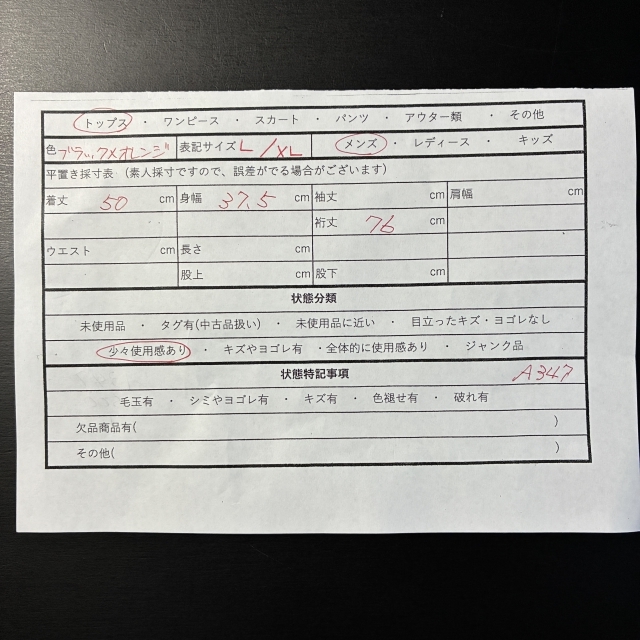 トップス ・ ワンピース ・ スカート ・ パンツ ・ アウター類 ・ その他
色 ブラック×オレンジ 表記サイズ L/XL メンズ ・ レディース ・ キッズ
平置き採寸表 （素人採寸ですので、誤差がでる場合がございます）
着丈 50 cm 身幅 37.5 cm 袖丈 cm 肩幅 cm
裄丈 76 cm
ウエスト cm 長さ cm
股上 cm 股下 cm
状態分類
未使用品 ・ タグ有(中古品扱い) ・ 未使用品に近い ・ 目立ったキズ・ヨゴレなし
少々使用感あり ・ キズやヨゴレ有 ・全体的に使用感あり ・ ジャンク品
状態特記事項 A347
毛玉有 ・ シミやヨゴレ有 ・ キズ有 ・ 色褪せ有 ・ 破れ有
欠品商品有( )
その他( )